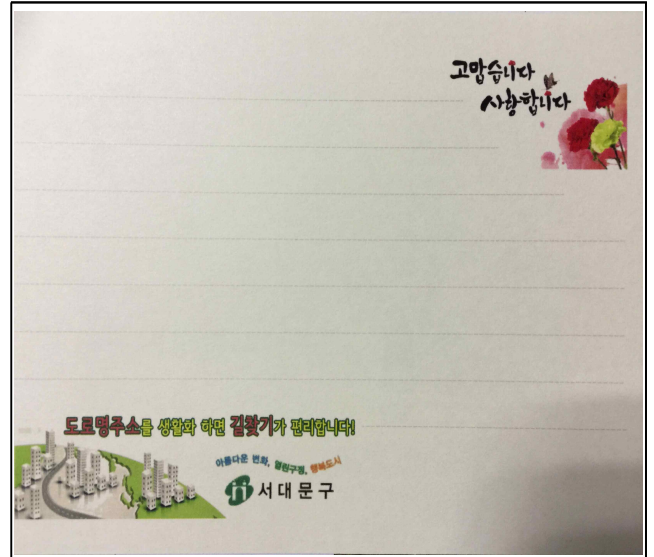 고맙습니다
사랑합니다
도로명주소를 생활화 하면 길찾기가 편리합니다!
아름다운 변화, 열린구정, 행복도시
서대문구